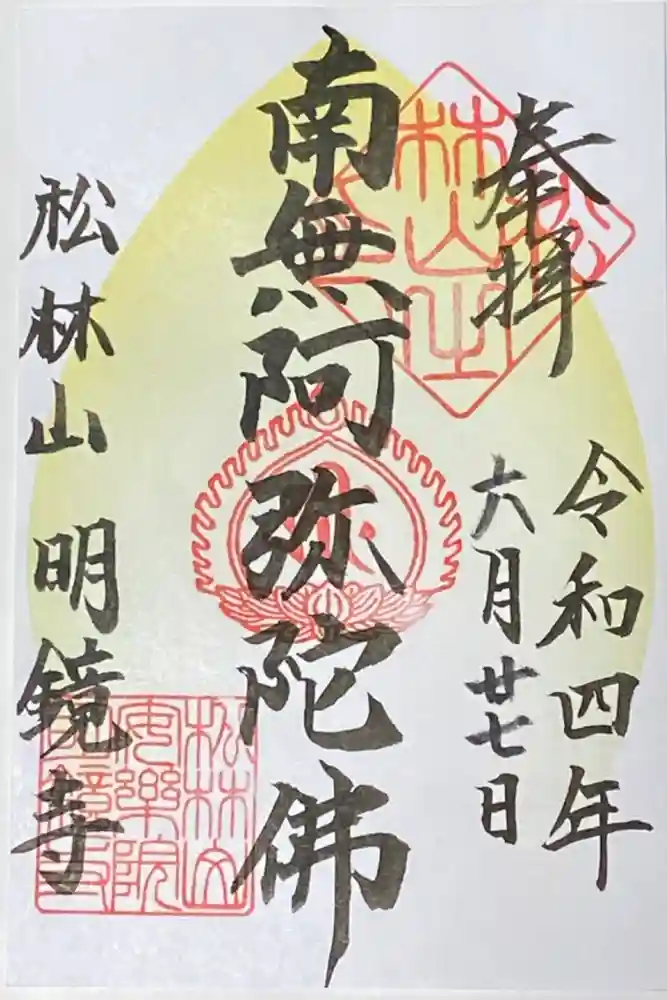 奉拝
令和四年
六月廿七日
南無阿弥陀佛
松林山 明鏡寺
松林山
安樂院
明鏡寺